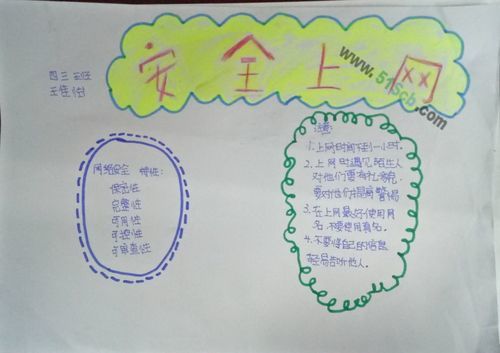 安全上网
www.51Scb.com
四三班
王佳
网络安全 特性:
保密性
完整性
可用性
可控性
可审查性
注意:
1.上网时间不到一小时.
2.上网时遇见陌生人
对他们要有礼貌,
要对他们提高警惕
3.在上网最好使用网
名,不要使用真名.
4.不要将自己的信息
轻易告诉他人.